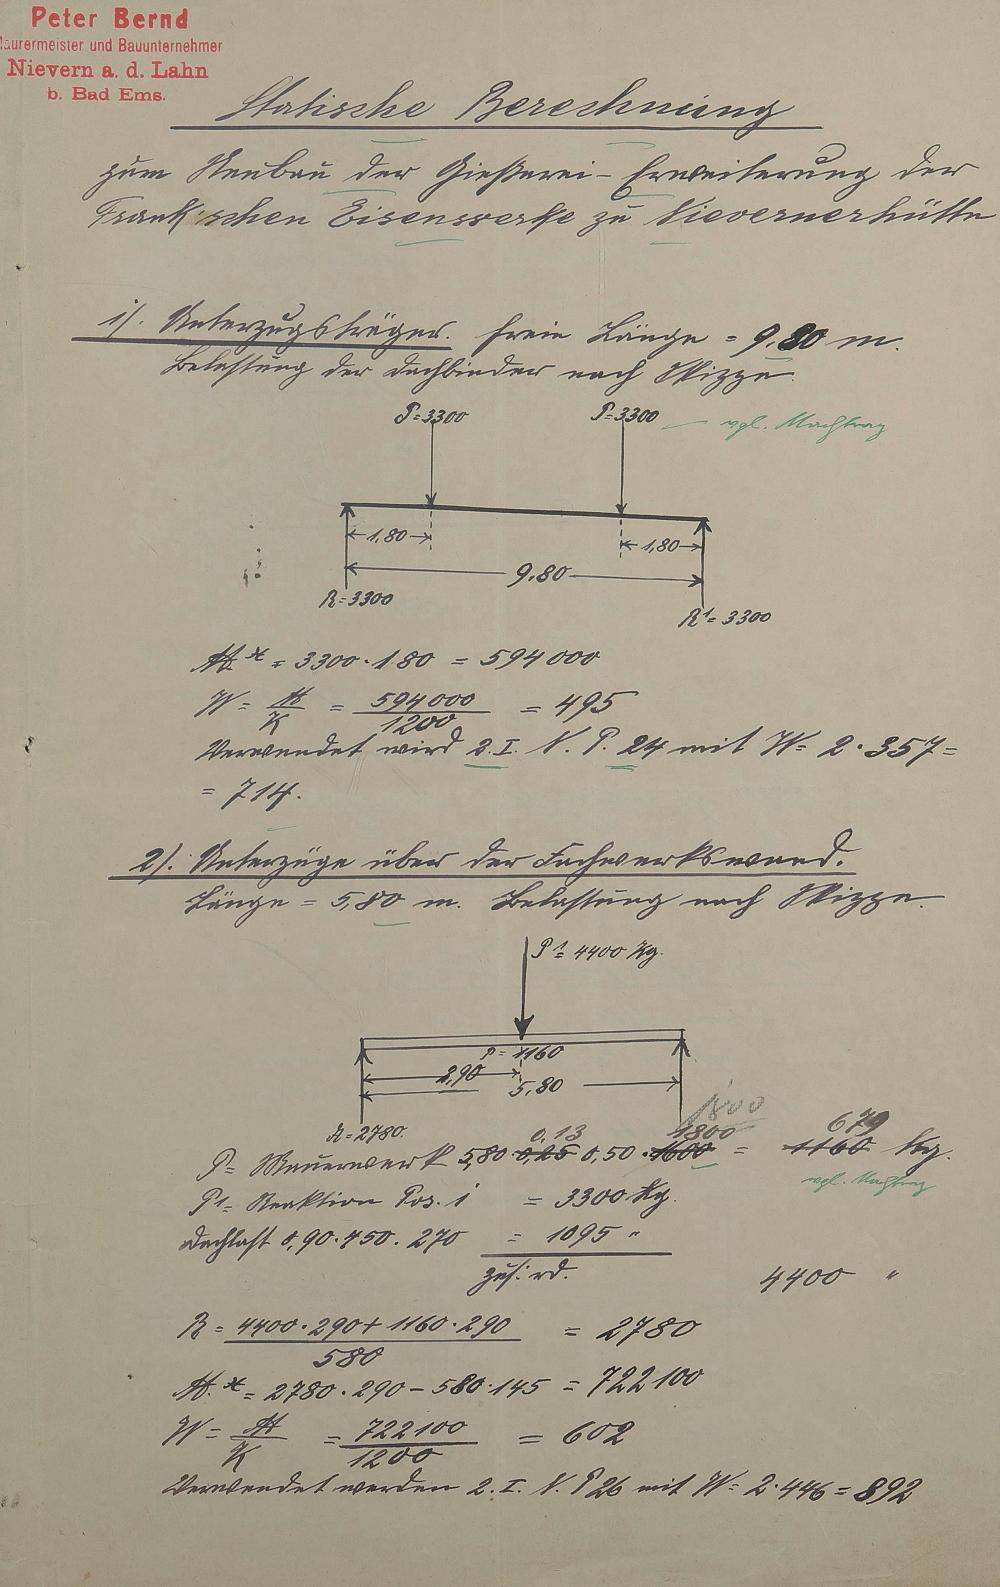 Peter Bernd
Maurermeister und Bauunternehmer
Nievern a. d. Lahn
b. Bad Ems.
Statische Berechnung
zum Neubau der Gießerei-Erweiterung der
Frank'schen Eisenwerke zu Nievernerhütte
1). Unterzugsträger. freie Länge = 9,80 m.
Belastung der Dachbinder nach Skizze.
P=3300 P=3300 vgl. Nachtrag
1,80 1,80
9.80
R=3300 R¹= 3300
M.x = 3300 · 180 = 594000
W = M/K = 594000/1200 = 495
Verwendet wird 2. I. N. P. 24 mit W= 2·357=
= 714.
2). Unterzüge über der Fachwerkswand.
Länge = 5,80 m. Belastung nach Skizze.
P¹= 4400 Kg.
P= 1160
2,90
5,80
R=2780.
1800
0,13 1800 679
P= Mauerwerk 5,80 · 0,25 · 0,50 · 1600 = 1160 Kg.
vgl. Nachtrag
P1= Reaktion Pos. 1 = 3300 Kg.
Dachlast 0,90 · 450 · 270 = 1095 "
zus. rd. 4400 "
R = 4400 · 290 + 1160 · 290 / 580 = 2780
M.x = 2780 · 290 – 580 · 145 = 722100
W = M/K = 722100/1200 = 602
Verwendet werden 2. I. N. P 26 mit W= 2·446 = 892